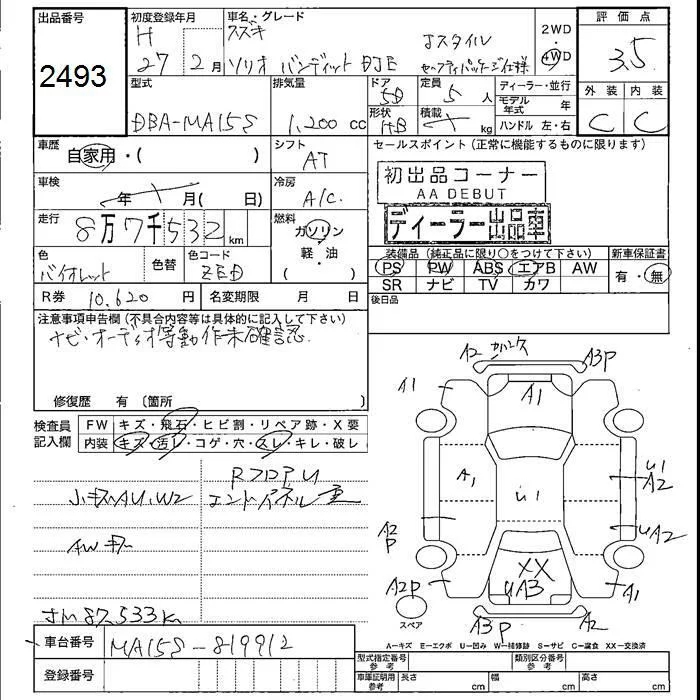 出品番号
2493
初度登録年月
H
27 2月
車名・グレード
スズキ Jスタイル
ソリオ バンディット DJE セーフティパッケージ仕様
2WD
4WD
評価点
3.5
型式
DBA-MA15S
排気量
1,200 cc
ドア
5D
形状
HB
定員
5 人
積載
kg
ディーラー・並行
モデル年式 年
ハンドル 左・右
外装 内装
C C
車歴
自家用・( )
シフト
AT
セールスポイント(正常に機能するものに限ります)
初出品コーナー
AA DEBUT
ディーラー出品車
車検
年 月( 日)
冷房
A/C
走行
8万7千532km
燃料
ガソリン
軽・油
( )
色
バイオレット
色替
色コード
ZED
装備品(純正品に限り○をつけて下さい)
PS PW ABS エアB AW
SR ナビ TV カワ
新車保証書
有・無
R券 10,620 円
名変期限 月 日
後日品
注意事項申告欄(不具合内容等は具体的に記入して下さい)
ナビ・オーディオ等動作未確認.
修復歴 有(箇所 )
検査員記入欄
FW キズ・飛石・ヒビ割・リペア跡・X要
内装 キズ・汚レ・コゲ・穴・スレ・キレ・破レ
RフロアU
小キズAU.W2 エンドパネル歪
AWキズ
オM 87,533k
車台番号 MA15S-819912
登録番号
A2 ガリキズ A3P
A1 A1
A1 U1 U1
A2
UA2
A2
P
XX
UA3
A2P A1
スペア
A3P A2
A=キズ E=エクボ U=凹み W=補修跡 S=サビ C=腐食 XX=交換済
型式指定番号
参考
類別区分番号
参考
車庫証明用
参考
長さ cm 幅 cm 高さ cm